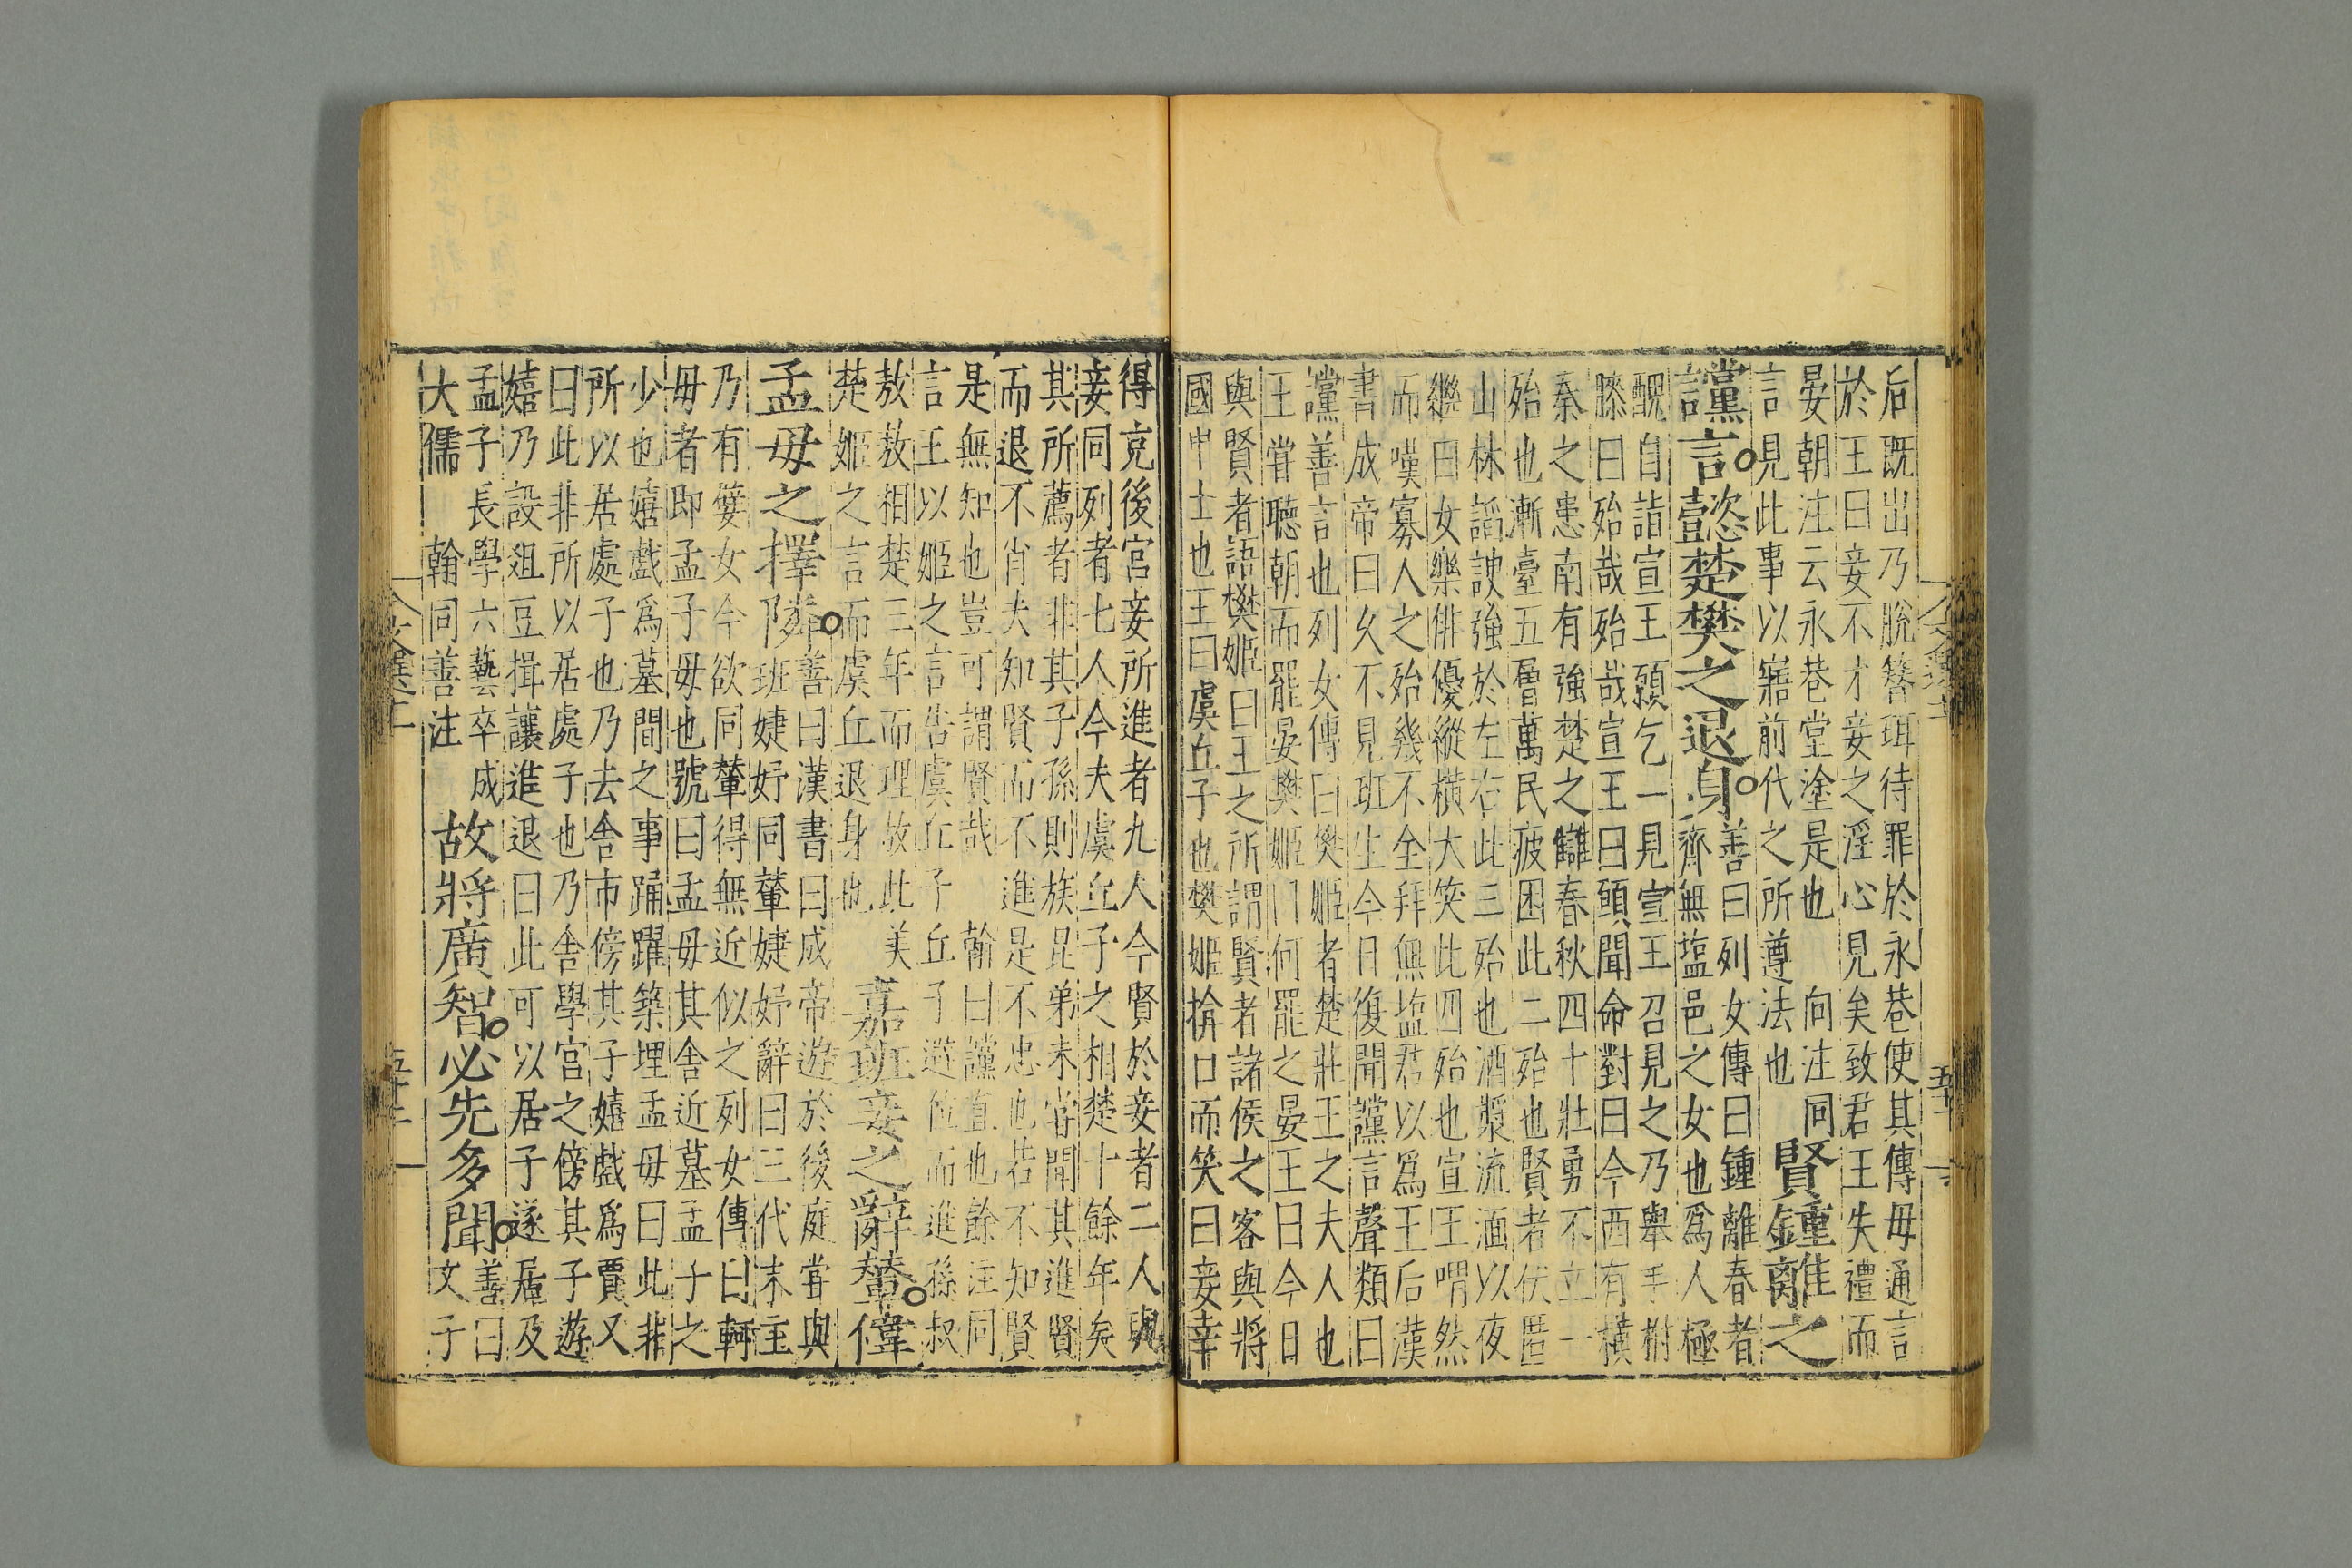 后既出乃脫簪珥待罪於永巷使其傳母通言
於王曰妾不才妾之淫心見矣致君王失禮而
晏朝注云永巷堂塗是也 向注同
言見此事以寤前代之所遵法也
賢鍾離之
讜言懿楚樊之退身
善曰列女傳曰鍾離春者
齊無塩邑之女也爲人極
醜自詣宣王願乞一見宣王召見之乃舉手拊
膝曰殆哉殆哉宣王曰頭聞命對曰今西有橫
秦之患南有強楚之讎春秋四十壯勇不立一
殆也漸臺五層萬民疲困此二殆也賢者伏匿
山林謟諛強於左右此三殆也酒漿流湎以夜
繼曰女樂俳優縱橫大笑此四殆也宣王喟然
而嘆寡人之殆幾不全拜無塩君以爲王后漢
書成帝曰久不見班生今日復聞讜言聲類曰
讜善言也列女傳曰樊姬者楚莊王之夫人也
王甞聽朝而罷晏樊姬門何罷之晏王曰今日
與賢者語樊姬曰王之所謂賢者諸侯之客與將
國中士也王曰虞丘子也樊姬揜口而笑曰妾幸
得充後宮妾所進者九人今賢於妾者二人與
妾同列者七人今夫虞丘子之相楚十餘年矣
其所薦者非其子孫則族昆弟未甞聞其進賢
而退不肖夫知賢而不進是不忠也若不知賢
是無知也豈可謂賢哉 翰曰讜直也餘注同
言王以姬之言告虞丘子丘子避位而進孫叔
敖敖相楚三年而理故此美
楚姬之言而虞丘退身也
嘉班妾之辭輦偉
孟母之擇隣
善曰漢書曰成帝遊於後庭甞與
班婕妤同輦婕妤辭曰三代末主
乃有嬖女今欲同輦得無近似之列女傳曰軻
母者即孟子母也號曰孟母其舍近墓孟子之
少也嬉戲爲墓間之事踊躍築埋孟母曰此非
所以居處子也乃去舍市傍其子嬉戲爲賈又
曰此非所以居處子也乃舍學宮之傍其子遊
嬉乃設俎豆揖讓進退曰此可以居子遂居及
孟子長學六藝卒成
大儒 翰同善注
故將廣智必先多聞
善曰
文子